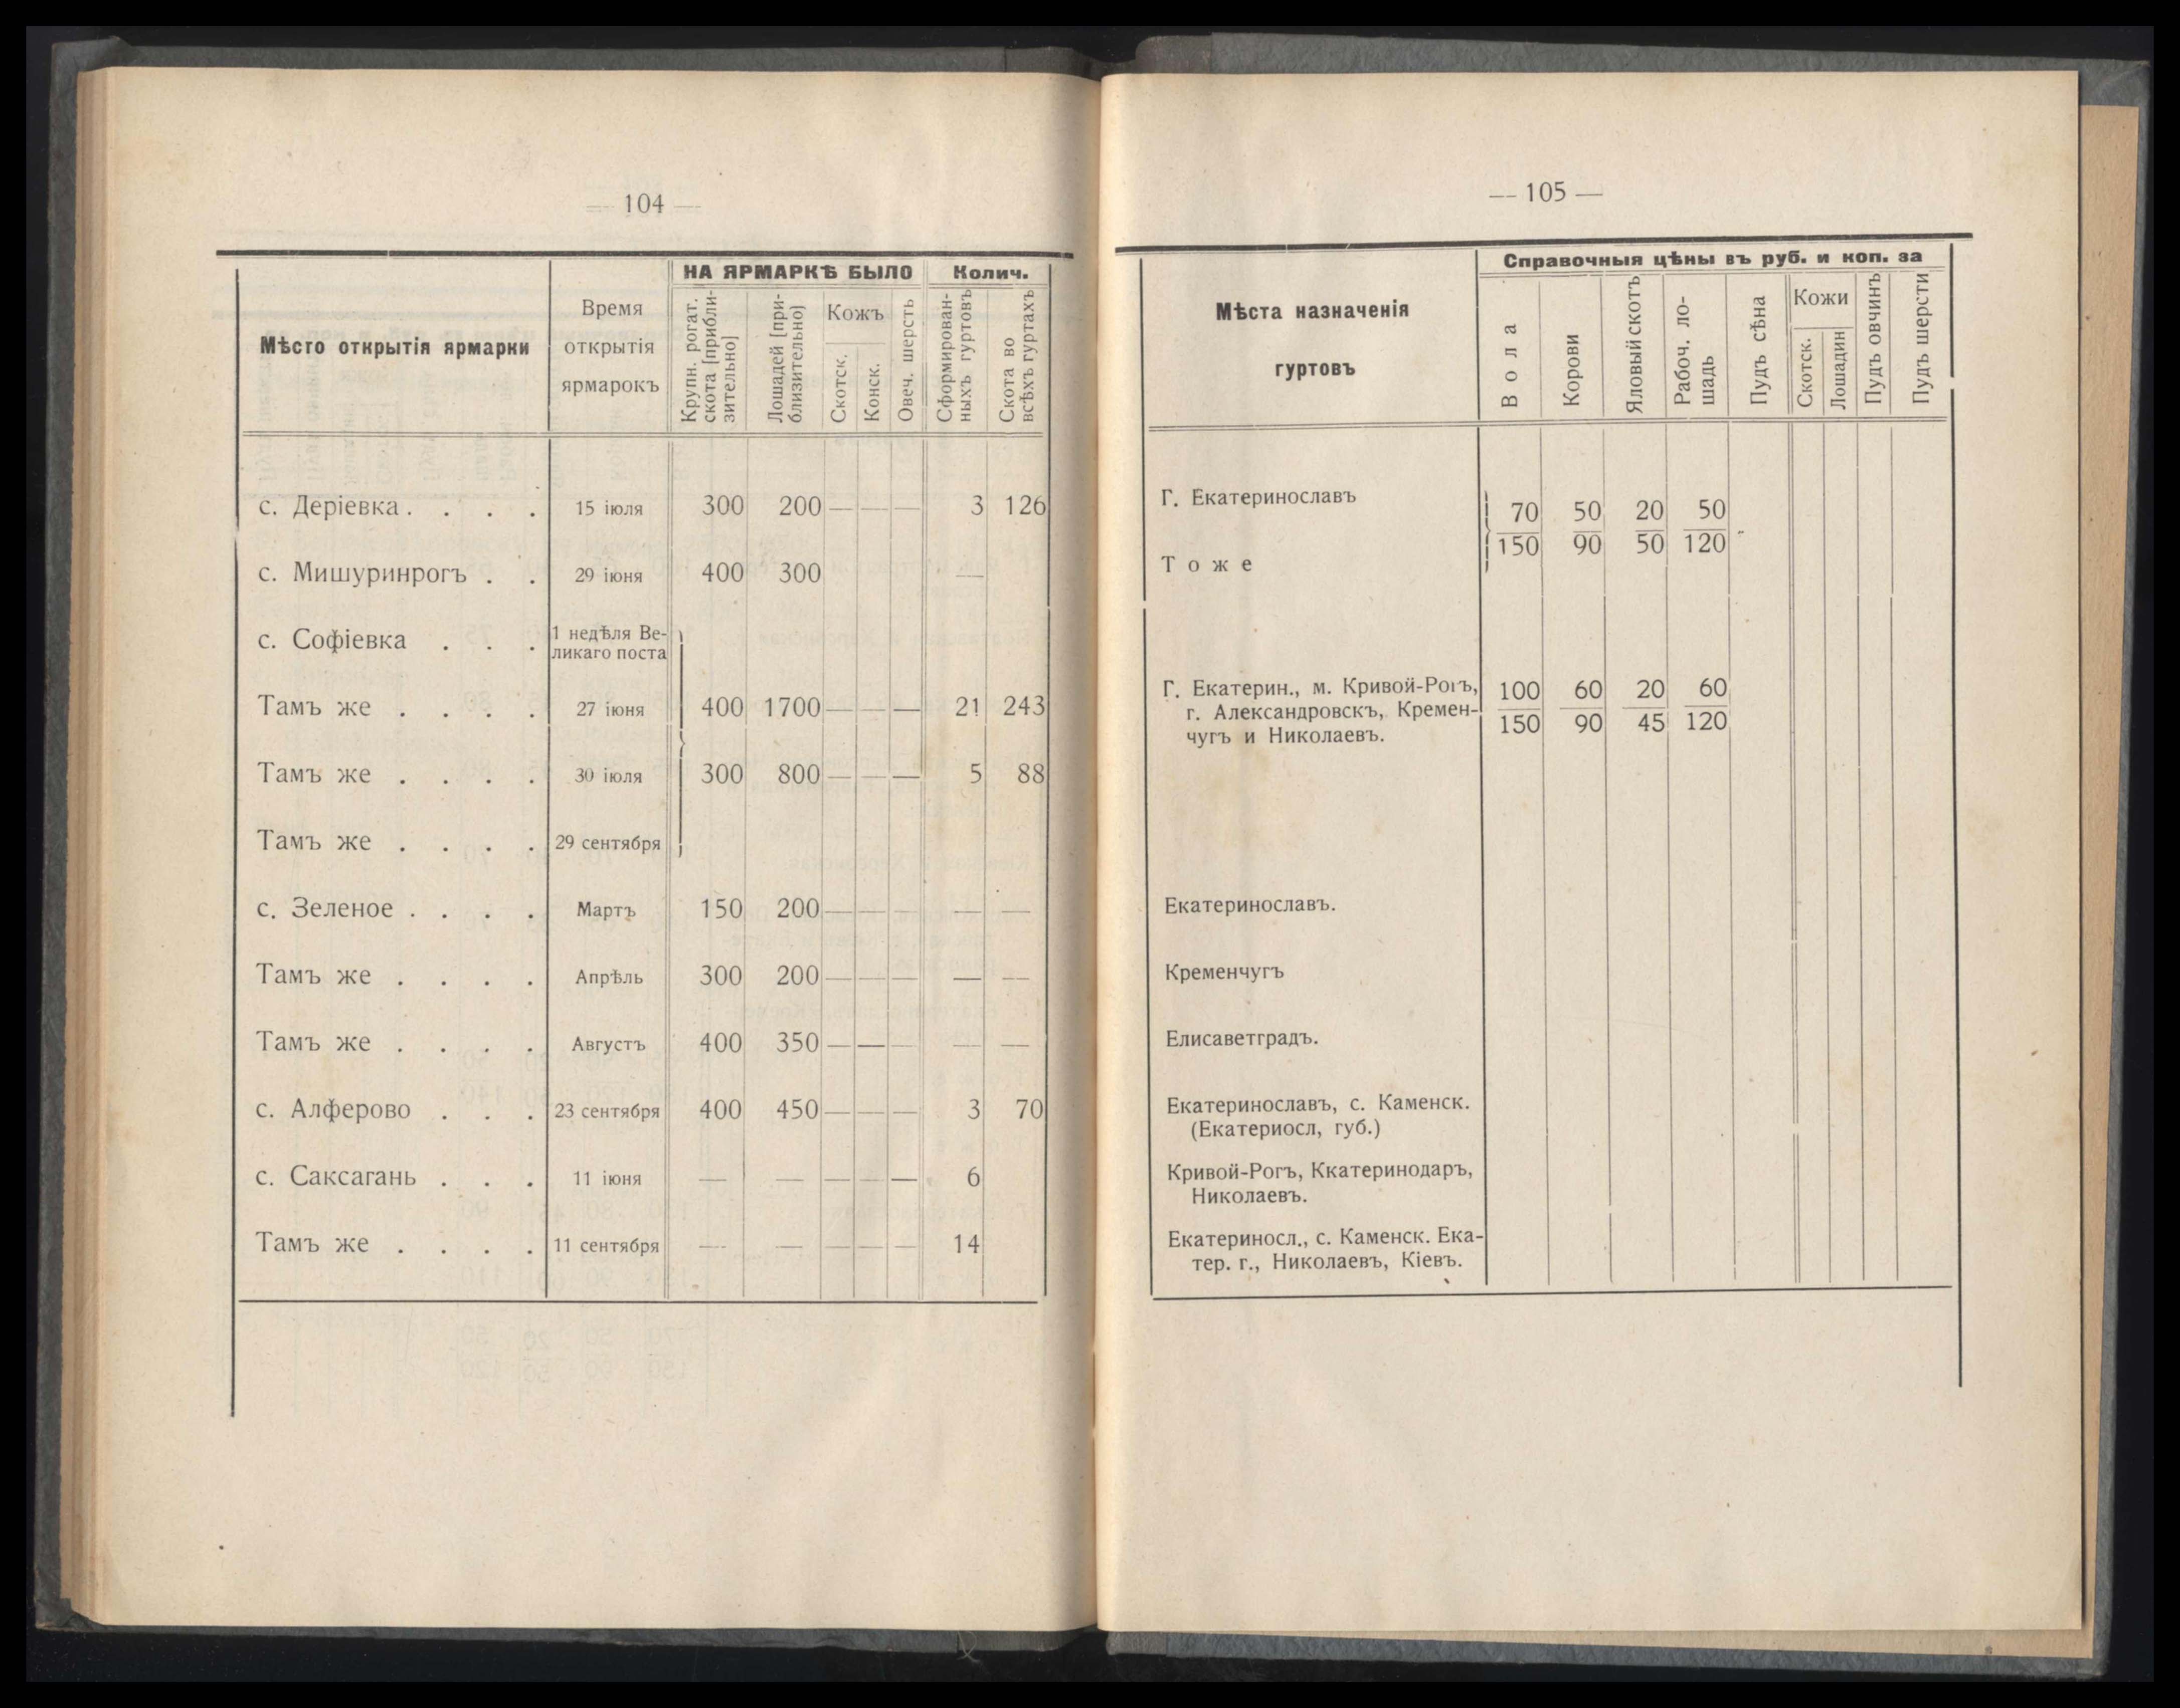 — 104 —
Мѣсго открытія ярмарки
Время
открытія
ярмарокъ
НА ЯРМАРКѢ БЫЛО
Колич.
Крупн. рогат.
скота [прибли-
зительно]
Лошадей [при-
близительно]
Кожъ
Скотск.
Конск.
Овеч. шерсть
Сформирован-
ныхъ гуртовъ
Скота во
всѣхъ гуртахъ
с. Деріевка . . . . 15 іюля 300 200 — — — 3 126
с. Мишуринрогъ . . 29 іюня 400 300 —
с. Софіевка . . . 1 недѣля Ве-
ликаго поста
Тамъ же . . . . 27 іюня 400 1700 — — — 21 243
Тамъ же . . . . 30 іюля 300 800 — — — 5 88
Тамъ же . . . . 29 сентября
с. Зеленое . . . . Мартъ 150 200 — — — — —
Тамъ же . . . . Апрѣль 300 200 — — — — —
Тамъ же . . . . Августъ 400 350 — — — — —
с. Алферово . . . 23 сентября 400 450 — — — 3 70
с. Саксагань . . . 11 іюня — — — — — 6
Тамъ же . . . . 11 сентября — — — — — 14
— 105 —
Мѣста назначенія
гуртовъ
Справочныя цѣны въ руб. и коп. за
Вола
Корови
Яловый скотъ
Рабоч. ло-
шадь
Пудъ сѣна
Кожи
Скотск.
Лошадин
Пудъ овчинъ
Пудъ шерсти
Г. Екатеринославъ
70 50 20 50
150 90 50 120
Тоже
Г. Екатерин., м. Кривой-Рогъ, 100 60 20 60
г. Александровскъ, Кремен-
150 90 45 120
чугъ и Николаевъ.
Екатеринославъ.
Кременчугъ
Елисаветградъ.
Екатеринославъ, с. Каменск.
(Екатериосл, губ.)
Кривой-Рогъ, Ккатеринодаръ,
Николаевъ.
Екатериносл., с. Каменск. Ека-
тер. г., Николаевъ, Кіевъ.